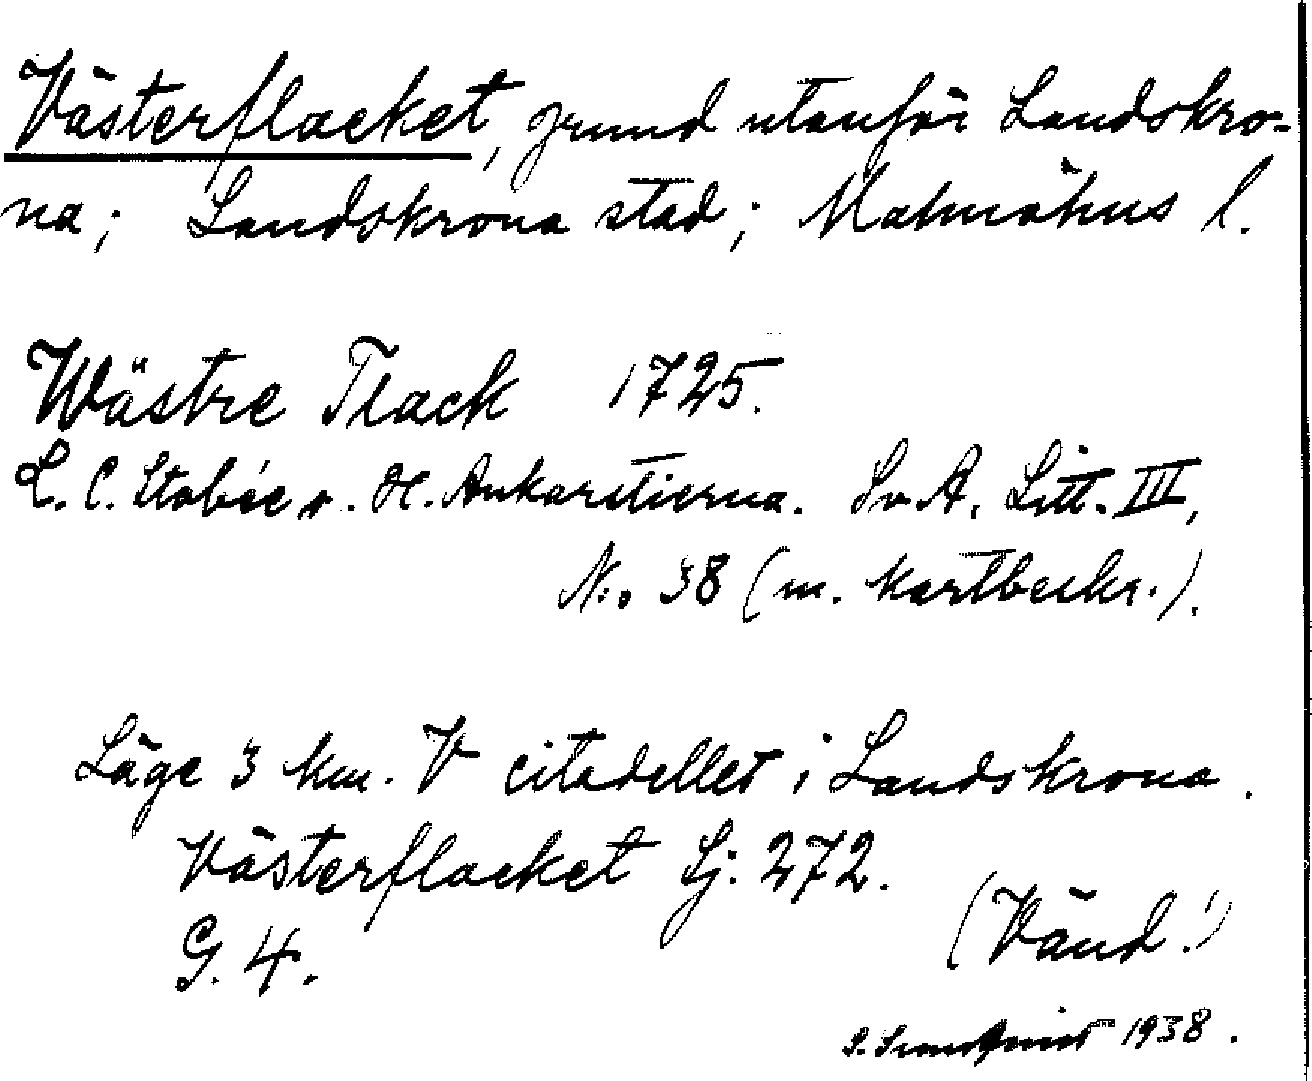 Västerflacket, grund utanför Landskro-
na; Landskrona stad; Malmöhus l.
Wästre Flack 1725.
L. C. Stobée o. H. Ankarstierna. Sv A. Litt. III,
N:o 38 (m. kartbeskr.).
Läge 3 km. V citadellet i Landskrona.
Västerflacket Sj. 272.
G. 4.
(Vänd!)
1938.